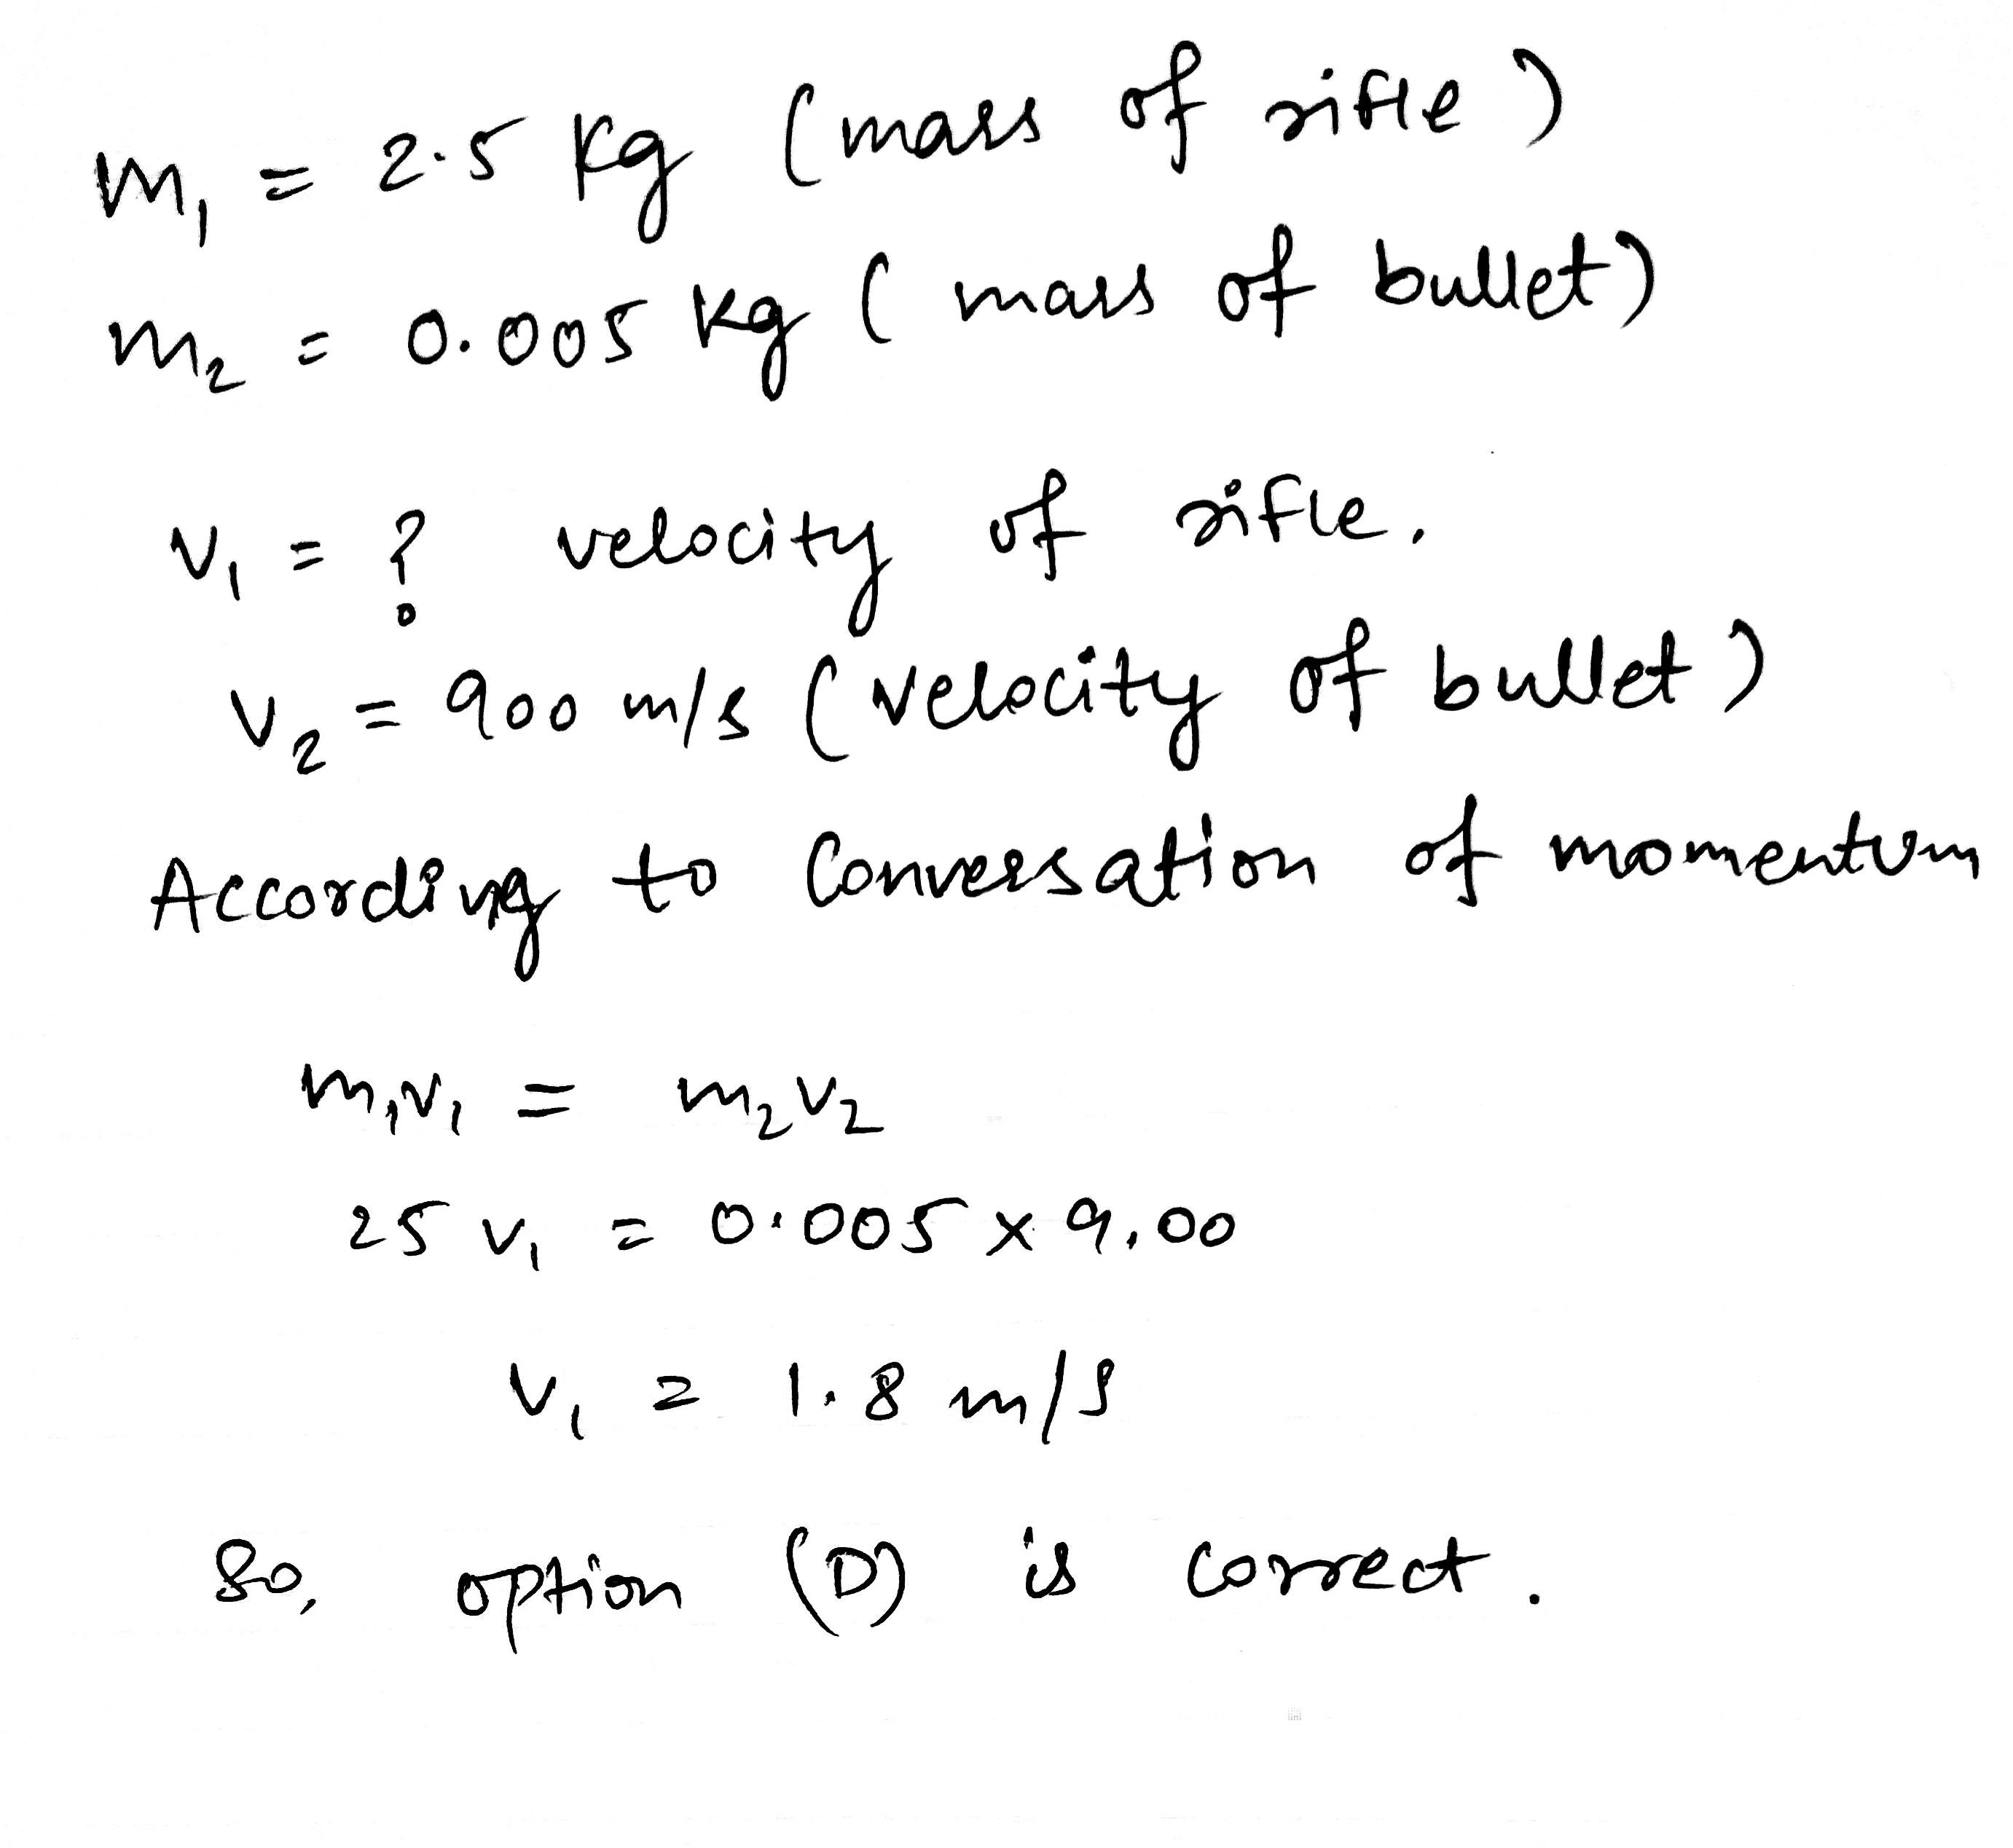 m₁ = 2.5 kg (mass of rifle)
m₂ = 0.005 kg (mass of bullet)
v₁ = ? velocity of rifle.
v₂ = 900 m/s (velocity of bullet)
According to Conversation of momentum
m₁v₁ = m₂v₂
25 v₁ = 0.005 x 9.00
v₁ = 1.8 m/s
So, option (D) is correct.